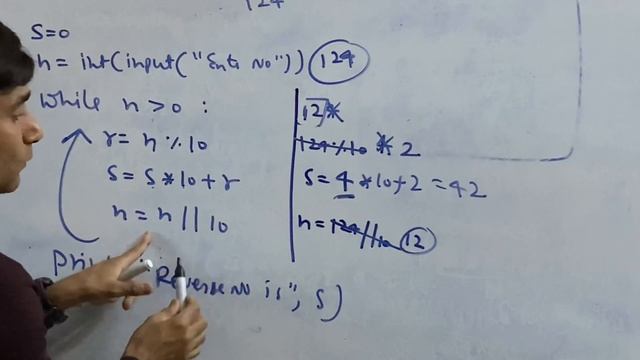 124
S=0
n = int(input("Ente No")) 124
while n>0 :
r= n % 10
s= s*10+r
n = n//10
Reverse no is", s)
12
2
s= 4*10+2=42
n= 124//10 12